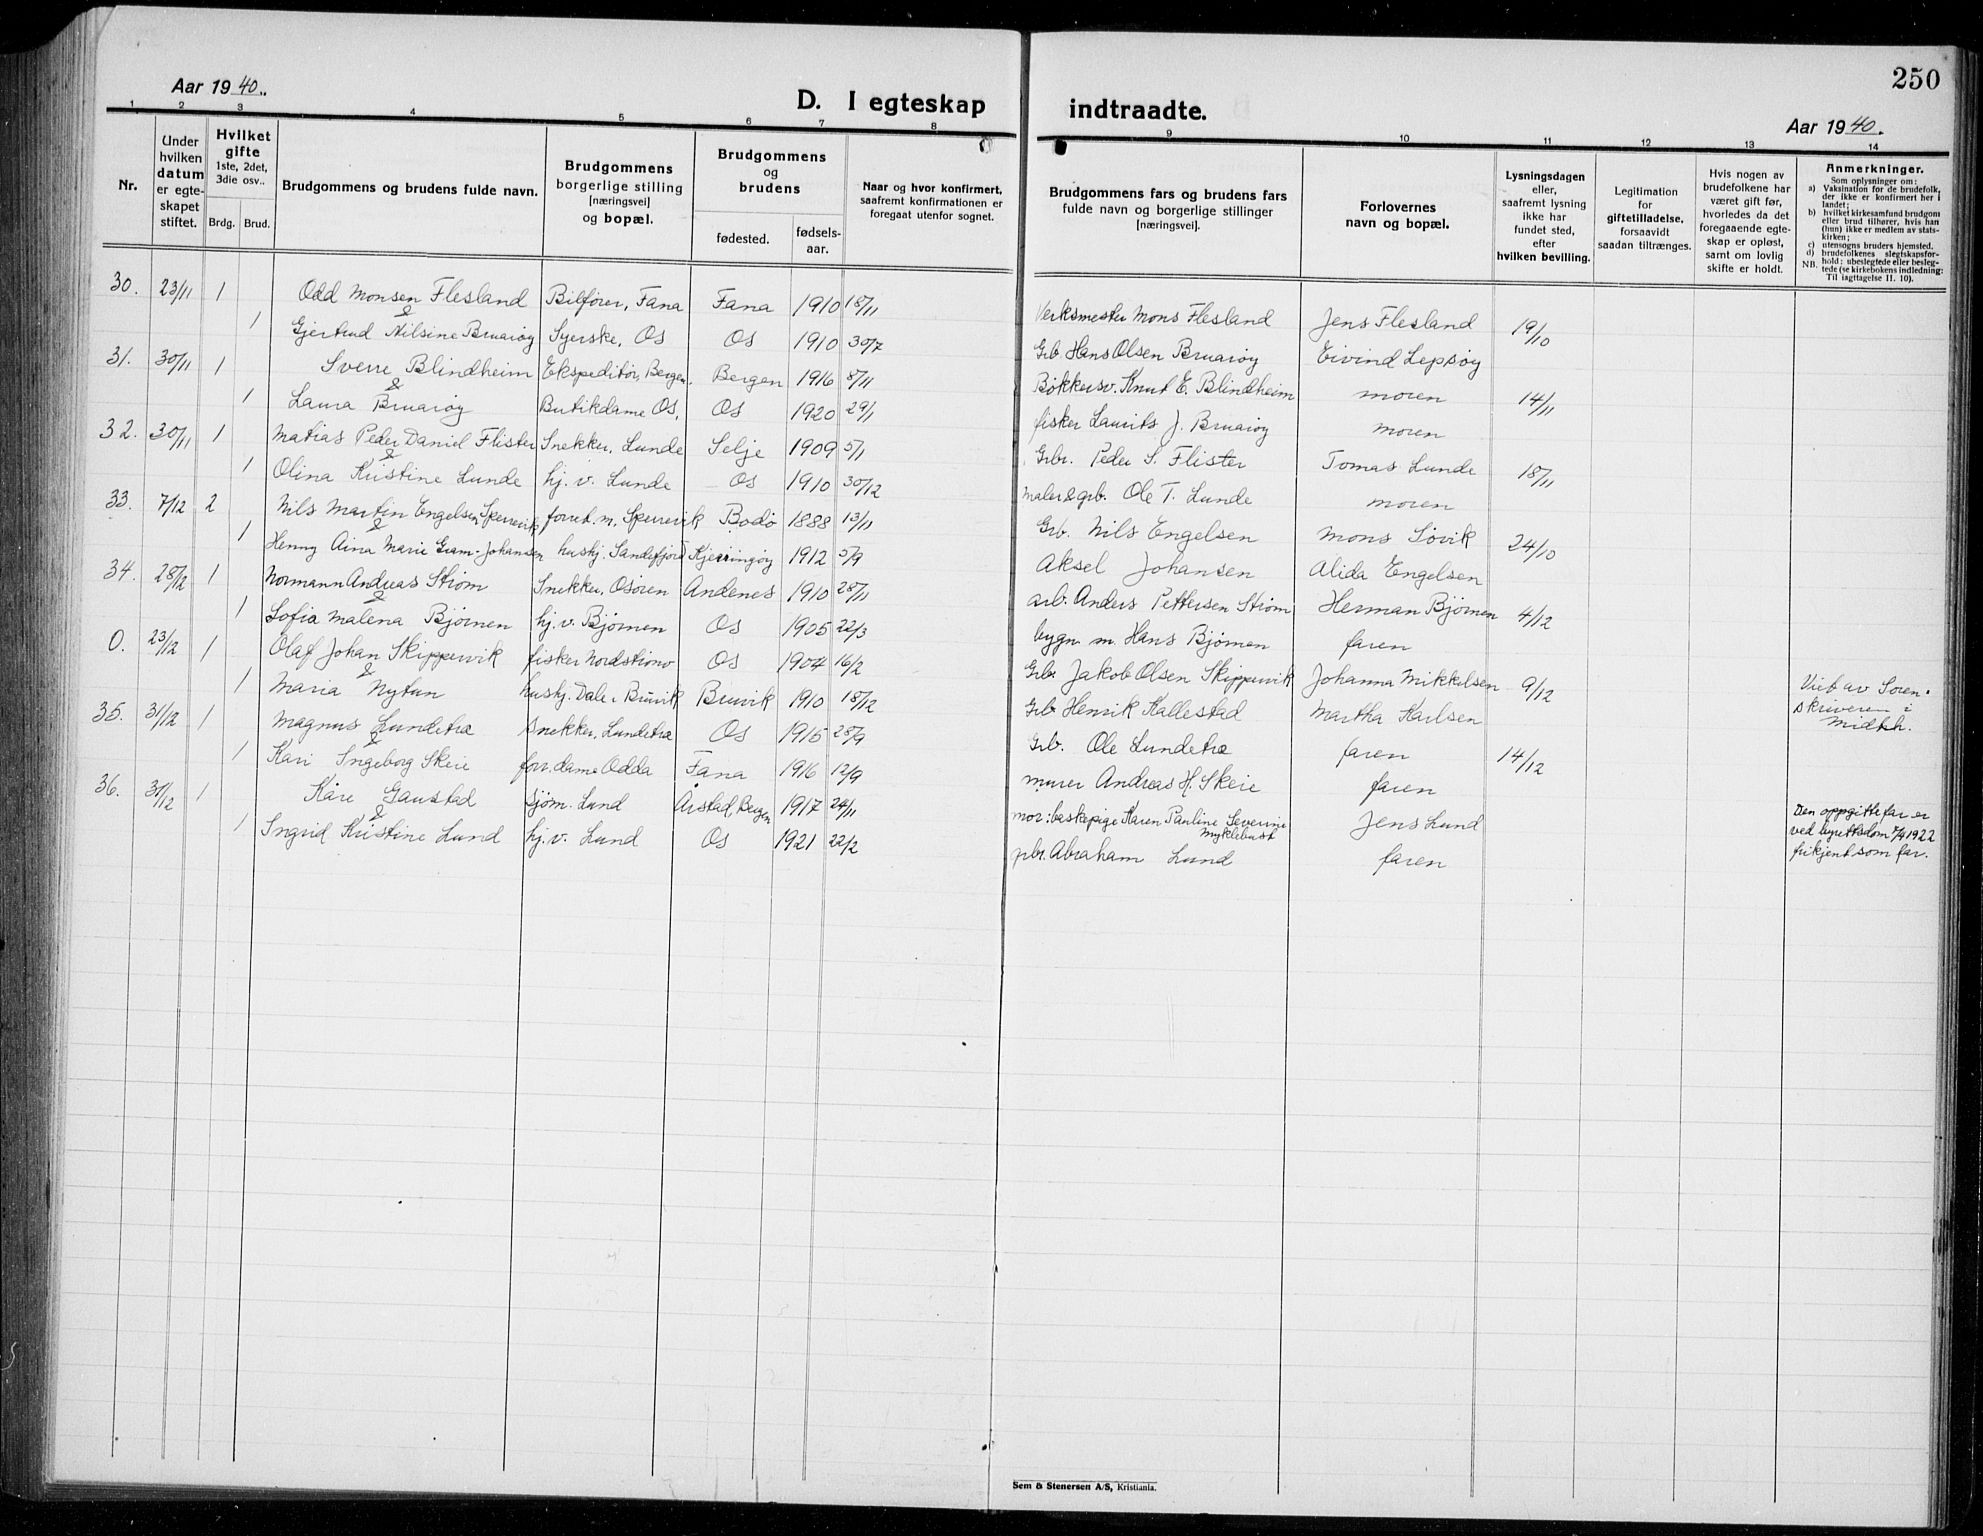 250
Aar 1940.
D. I egteskap indtraadte.
Aar 1940.
1 2 3 4 5 6 7 8 9 10 11 12 13 14
Nr.
Under hvilken datum er egte-skapet stiftet.
Hvilket gifte 1ste, 2det, 3die osv..
Brdg. Brud.
Brudgommens og brudens fulde navn.
Brudgommens borgerlige stilling [næringsvei] og bopæl.
Brudgommens og brudens
fødested. fødsels-aar.
Naar og hvor konfirmert, saafremt konfirmationen er foregaat utenfor sognet.
Brudgommens fars og brudens fars fulde navn og borgerlige stillinger [næringsvei].
Forlovernes navn og bopæl.
Lysningsdagen eller, saafremt lysning ikke har fundet sted, efter hvilken bevilling.
Legitimation for giftetilladelse, forsaavidt saadan tiltrænges.
Hvis nogen av brudefolkene har været gift før, hvorledes da det foregaaende egte-skap er opløst, samt om lovlig skifte er holdt.
Anmerkninger.
Som oplysninger om:
a) Vaksination for de brudefolk, der ikke er konfirmert her i landet;
b) hvilket kirkesamfund brudgom eller brud tilhører, hvis han (hun) ikke er medlem av stats-kirken;
c) utensogns bruders hjemsted.
d) brudefolkenes slegtskapsfor-hold: ubeslegtede eller besleg-tede (se kirkebokens indledning: Til iagttagelse II. 10).
NB.
30. 23/11 1 Odd Monsen Flesland Bilfører, Fana Fana 1910 18/11 Verksmester Mons Flesland Jens Flesland 19/10
&
1 Gjertrud Nilsine Bruarøy Syerske, Os Os 1910 30/7 Grb Hans Olsen Bruarøy Eivind Lepsøy
31. 30/11 1 Sverre Blindheim Ekspeditør, Bergen. Bergen 1916 8/11 Bøkkersv. Knut E. Blindheim moren 14/11
&
1 Laura Bruarøy Butikdame Os, Os 1920 29/1 fisker Laurits J. Bruarøy moren
32. 30/11 1 Matias Peder Daniel Flister Snekker, Lunde Selje 1909 5/1 Grbr. Peder S. Flister Tomas Lunde 18/11
&
1 Olina Kristine Lunde hj. v. Lunde Os 1910 30/12 maler & grb. Ole T. Lunde moren
33. 7/12 2 Nils Martin Engelsen Sperrevik forret. m, Sperrevik Bodø 1888 13/11 Grb. Nils Engelsen Mons Søvik 24/10
&
1 Henny Aina Marie Gram-Johansen hushj. Sandefjord Kjerringøy 1912 5/9 Aksel Johansen Alida Engelsen
34. 28/12 1 Normann Andreas Strøm Snekker, Osøren Andenes 1910 28/11 arb. Anders Pettersen Strøm Herman Bjørnen 4/12
&
1 Sofia Malena Bjørnen hj. v. Bjørnen Os 1905 22/3 bygn m. Hans Bjørnen faren
0. 23/12 1 Olaf Johan Skippervik fisker Nordstrøno Os 1904 16/2 Grb. Jakob Olsen Skippervik Johanna Mikkelsen 9/12
&
1 Maria Nytun hushj. Dale i Bruvik Bruvik 1910 18/12 Grb Henrik Kallestad Martha Karlsen
Vieb av Soren-
skriveren i
Midth.
35. 31/12 1 Magnus Lundetræ Snekker, Lundetræ Os 1915 28/9 Grb. Ole Lundetræ faren 14/12
&
1 Kari Ingeborg Skeie forr. dame Odda Fana 1916 12/9 murer Andreas H. Skeie faren
36. 31/12 1 Kåre Gaustad Sjøm. Lund Årstad, Bergen 1917 24/11 mor: baskepige Karen Pauline Severine Myklebust Jens Lund
&
1 Ingrid Kristine Lund hj. v. Lund Os 1921 22/2 gbr. Abraham Lund faren
Den oppgitte far er
ved byrettsdom 7/4 1922
frikjent som far.
Sem & Stenersen A/S, Kristiania.